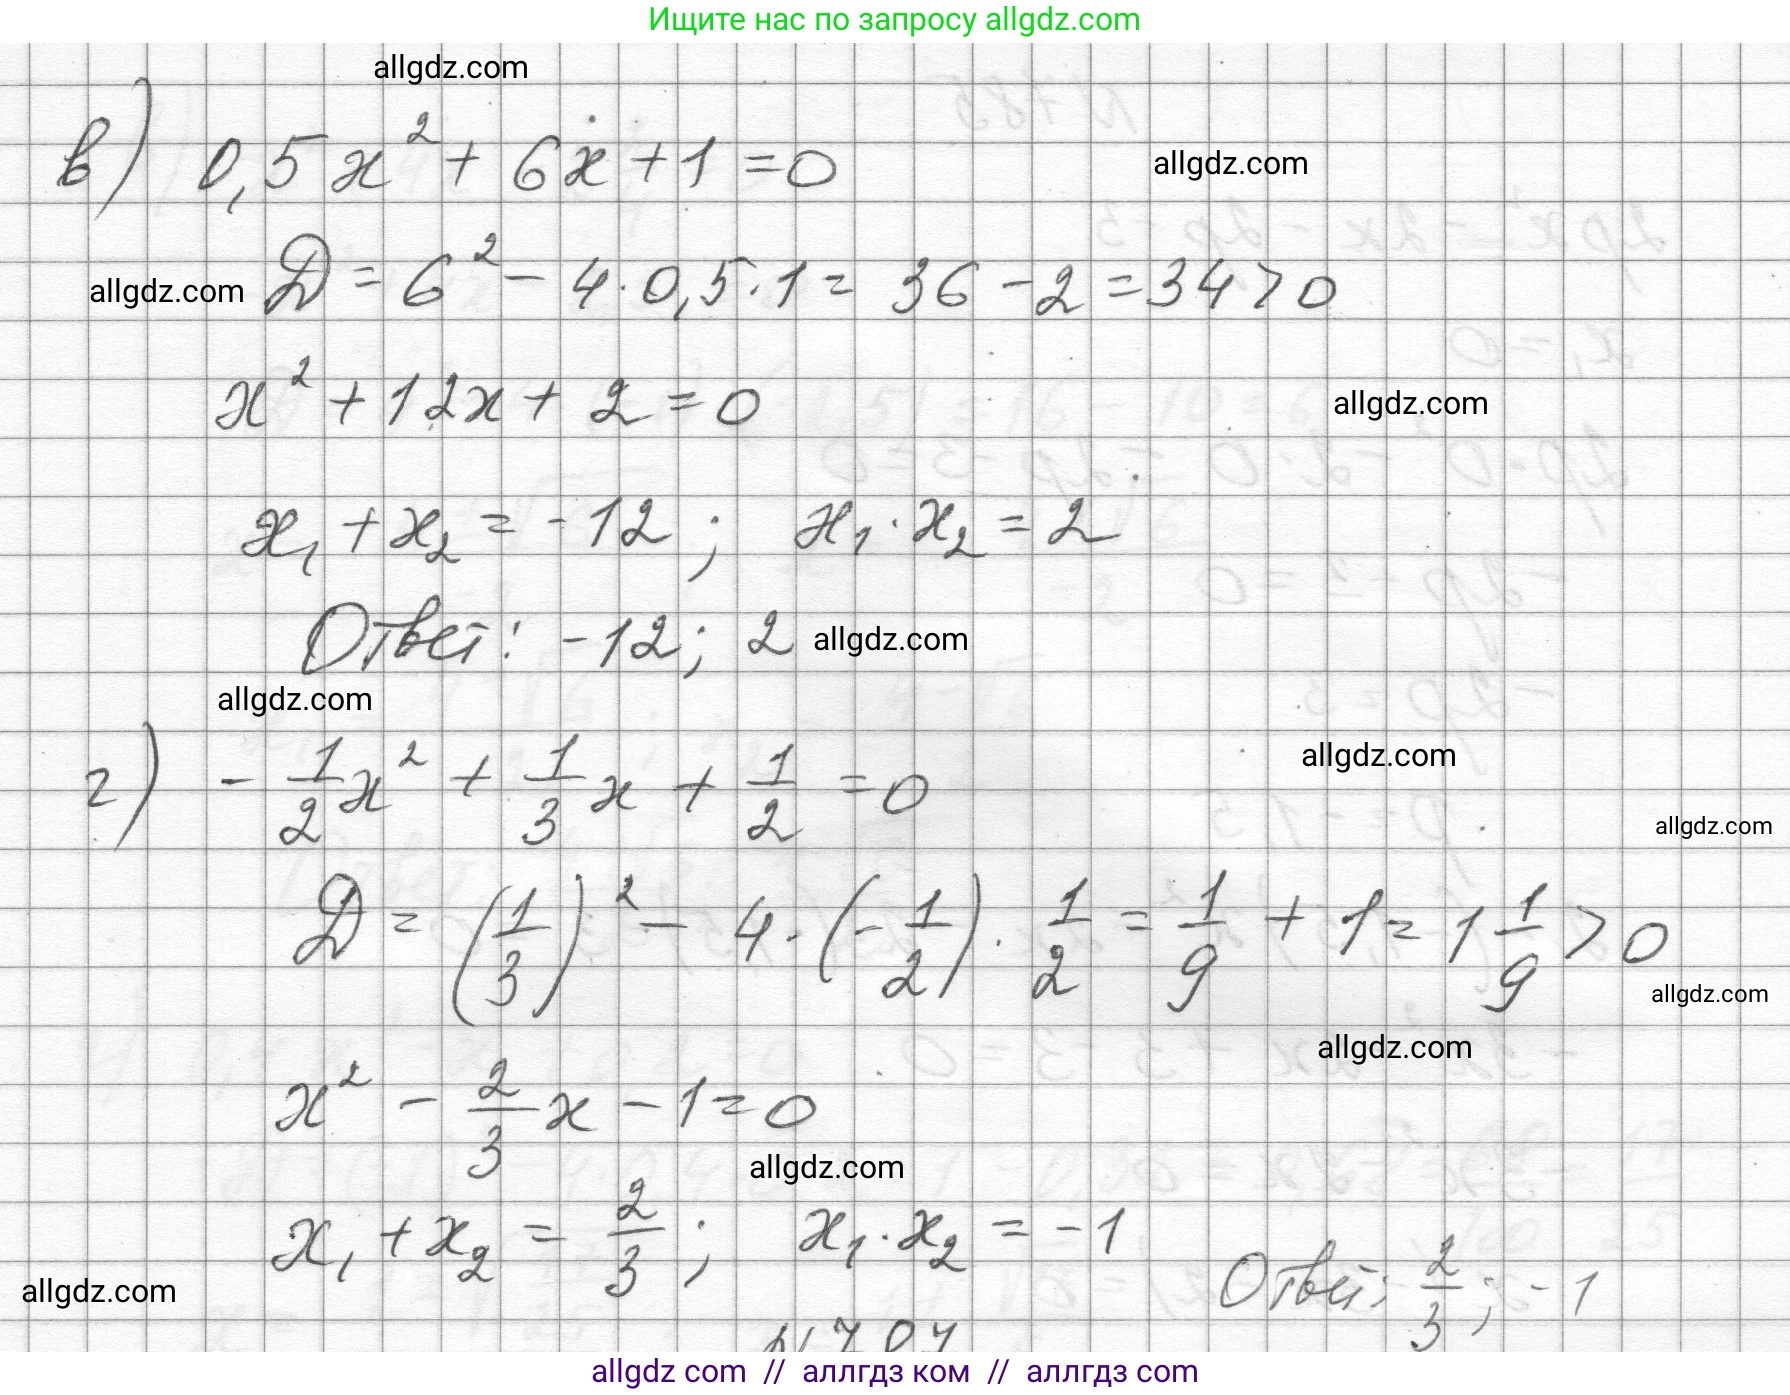 Ищите нас по запросу allgdz.com
allgdz.com
в) 0,5x² + 6x + 1 = 0
allgdz.com
allgdz.com
Д = 6² - 4 · 0,5 · 1 = 36 - 2 = 34 > 0
x² + 12x + 2 = 0
allgdz.com
x₁ + x₂ = -12 ; x₁ · x₂ = 2
Ответ: -12; 2
allgdz.com
allgdz.com
г) -1/2x² + 1/3x + 1/2 = 0
allgdz.com
allgdz.com
Д = (1/3)² - 4 · (-1/2) · 1/2 = 1/9 + 1 = 1 1/9 > 0
allgdz.com
allgdz.com
x² - 2/3x - 1 = 0
allgdz.com
x₁ + x₂ = 2/3; x₁ · x₂ = -1
Ответ: 2/3; -1
allgdz.com
allgdz com // аллгдз ком // аллгдз com